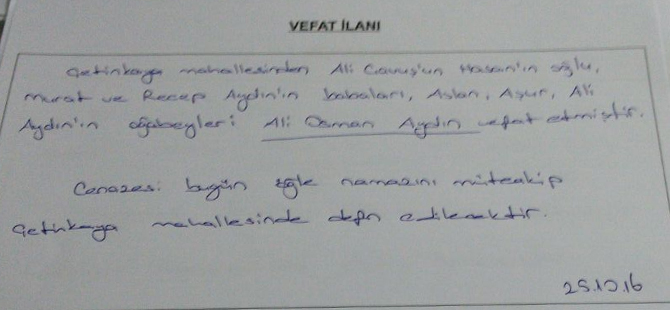 VEFAT İLANI
Çetinkaya mahallesinden Ali Çavuş'un Hasan'ın oğlu,
Murat ve Recep Aydın'ın babaları, Aslan, Aşur, Ali
Aydın'ın ağabeyleri Ali Osman Aydın vefat etmiştir.
Cenazesi bugün öğle namazını müteakip
Çetinkaya mahallesinde defn edilecektir.
25.10.16